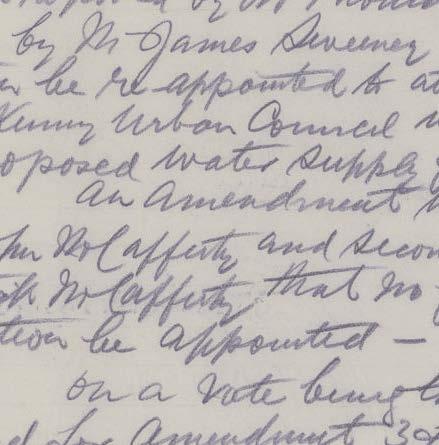 by Mr James Sweeney
be re appointed to at
Kenny Urban Council
oposed Water Supply
An Amendment
hn McCafferty and secon
ck McCafferty that no
tion be appointed —
on a vote being
d for Amendment 3